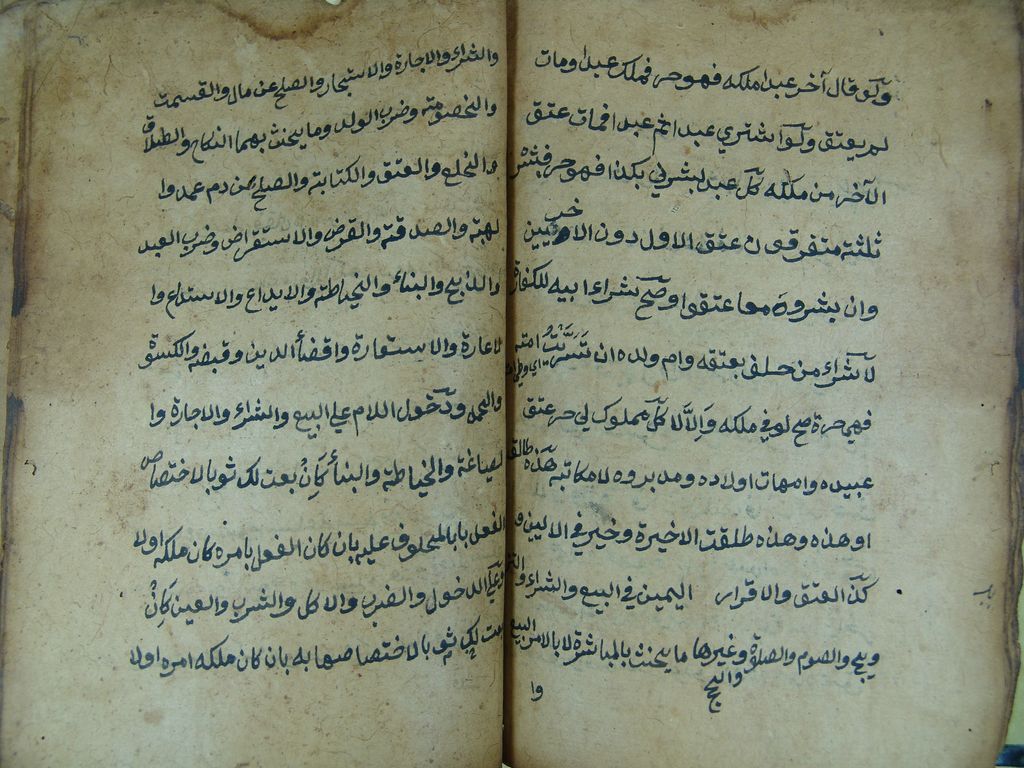 ولو قال آخر عبد املكه فهو حر فملك عبدا ومات
لم يعتق ولو اشتري عبدا ثم عبدا فمات عتق
الآخر من ملكه كل عبد بشرني بكذا فهو حر فبشر
ثلثة متفرقون عتق الاول دون الاخريين
وان بشروه معا عتقوا وصح شراء ابيه للكفارة
لا شراء من حلف بعتقه وام ولده ان تسريت امة
اي وطي
فهي حرة صح لو في ملكه والا لا كل مملوك لي حر عتق
عبيده وامهات اولاده ومدبروه لا مكاتبه هذه طالق
او هذه وهذه طلقت الاخيرة وخير في الاليين و
كذا العتق والاقرار اليمين في البيع والشراء والتز
ويج والصوم والصلوة وغيرها ما يحنث بالمباشرة لا بالامر البيع
والحج
وا
والشراء والاجارة والاستيجار والصلح عن مال والقسمت
والخصومة وضرب الولد وما يحنث بهما النكاح والطلاق
والخلع والعتق والكتابة والصلح عن دم عمد وا
لهبة والصدقة والقرض والاستقراض وضرب العبد
والذبح والبناء والخياطة والايداع والاستداع وا
لاعارة والاستعارة واقضأ الدين وقبضه والكسوة
والحمل ودخول اللام علي البيع والشراء والاجارة وا
لصياغة والخياطة والبنأ كان بعت لك ثوبا لاختصاص
الفعل بالمحلوف عليه بان كان الفعل بامره كان ملكه اولا
وعلي الدخول والضرب والاكل والشرب والعين كان
بعت لك ثوبا لاختصاصها به بان كان ملكه امره اولا